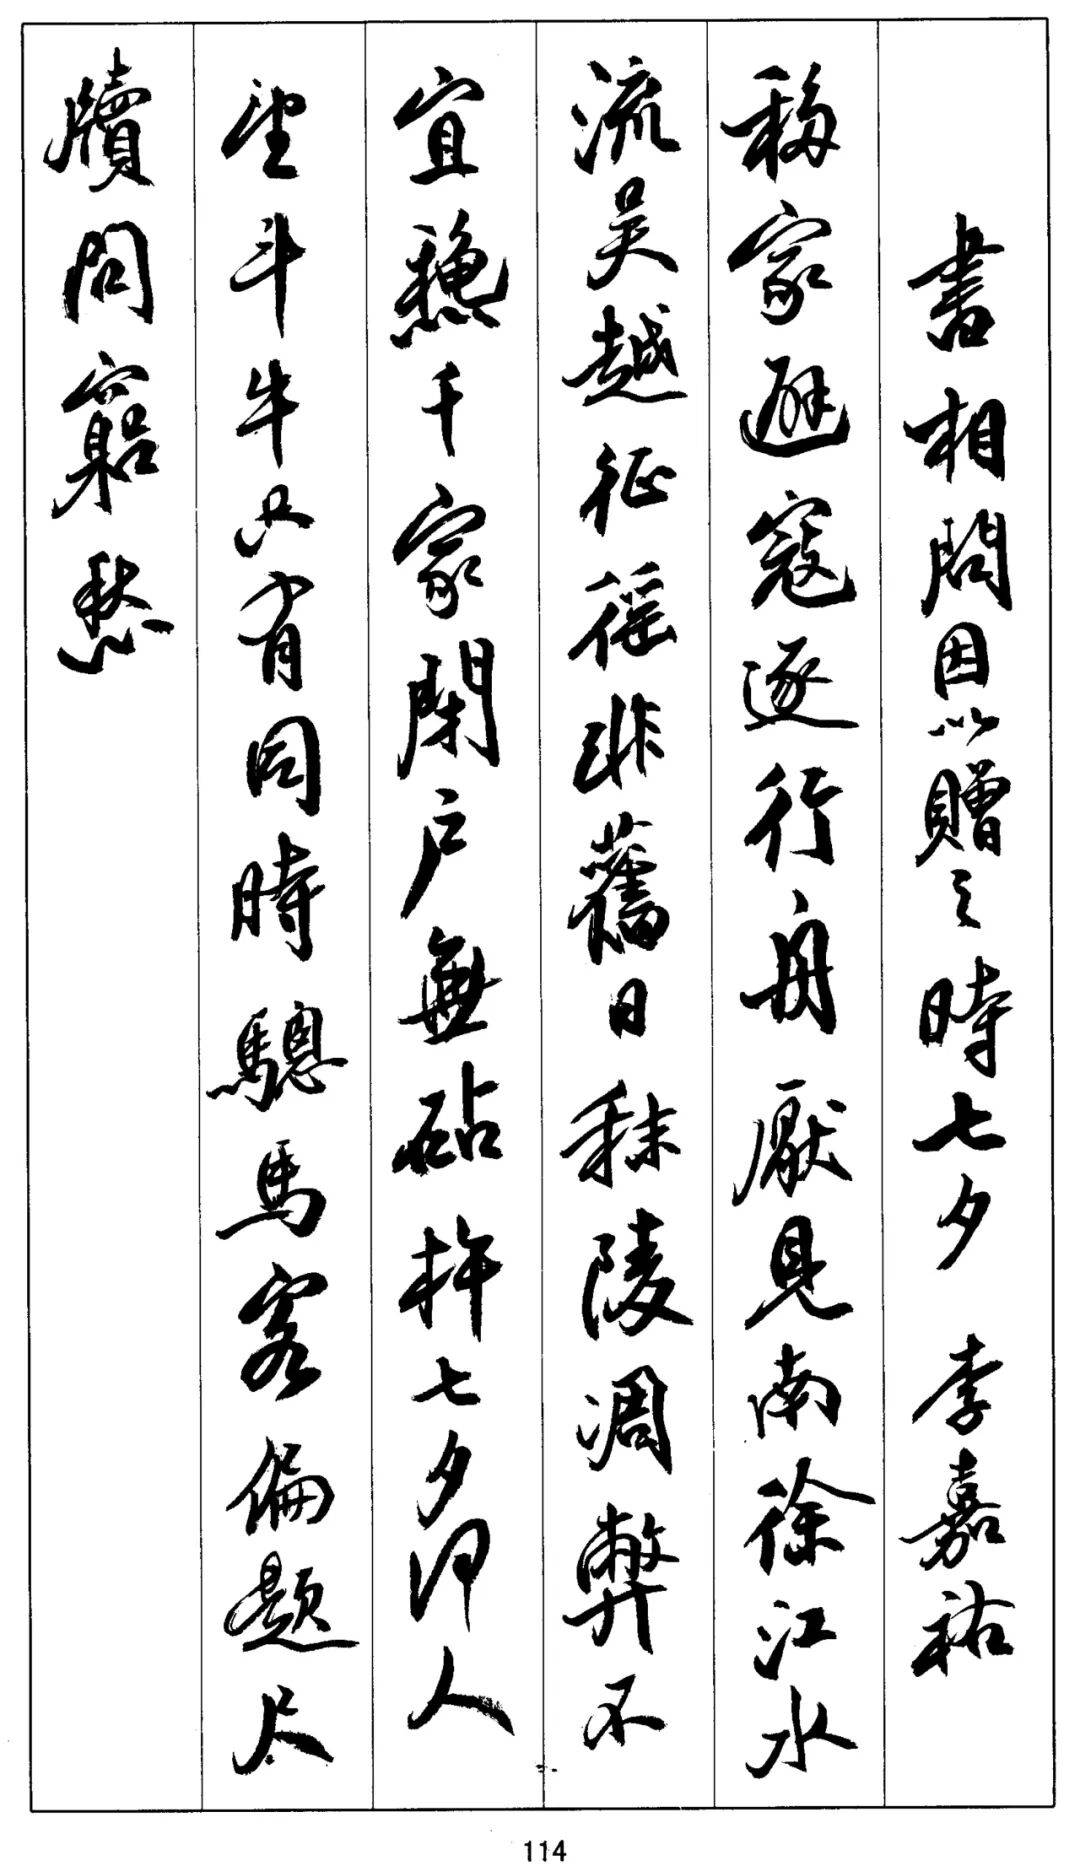 書相問因以贈之時七夕 李嘉祐
移家避寇逐行舟厭見南徐江水
流吴越征徭非舊日秣陵凋弊不
宜龝千家閉户無砧杵七夕何人
望斗牛只有同時驄馬客偏題尺
牘問窮愁
114